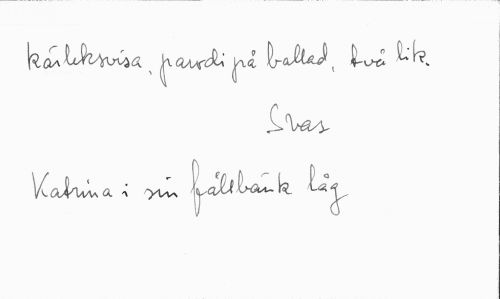 kärleksvisa, parodi på ballad, två lik.
Svas
Katrina i sin fållbänk låg